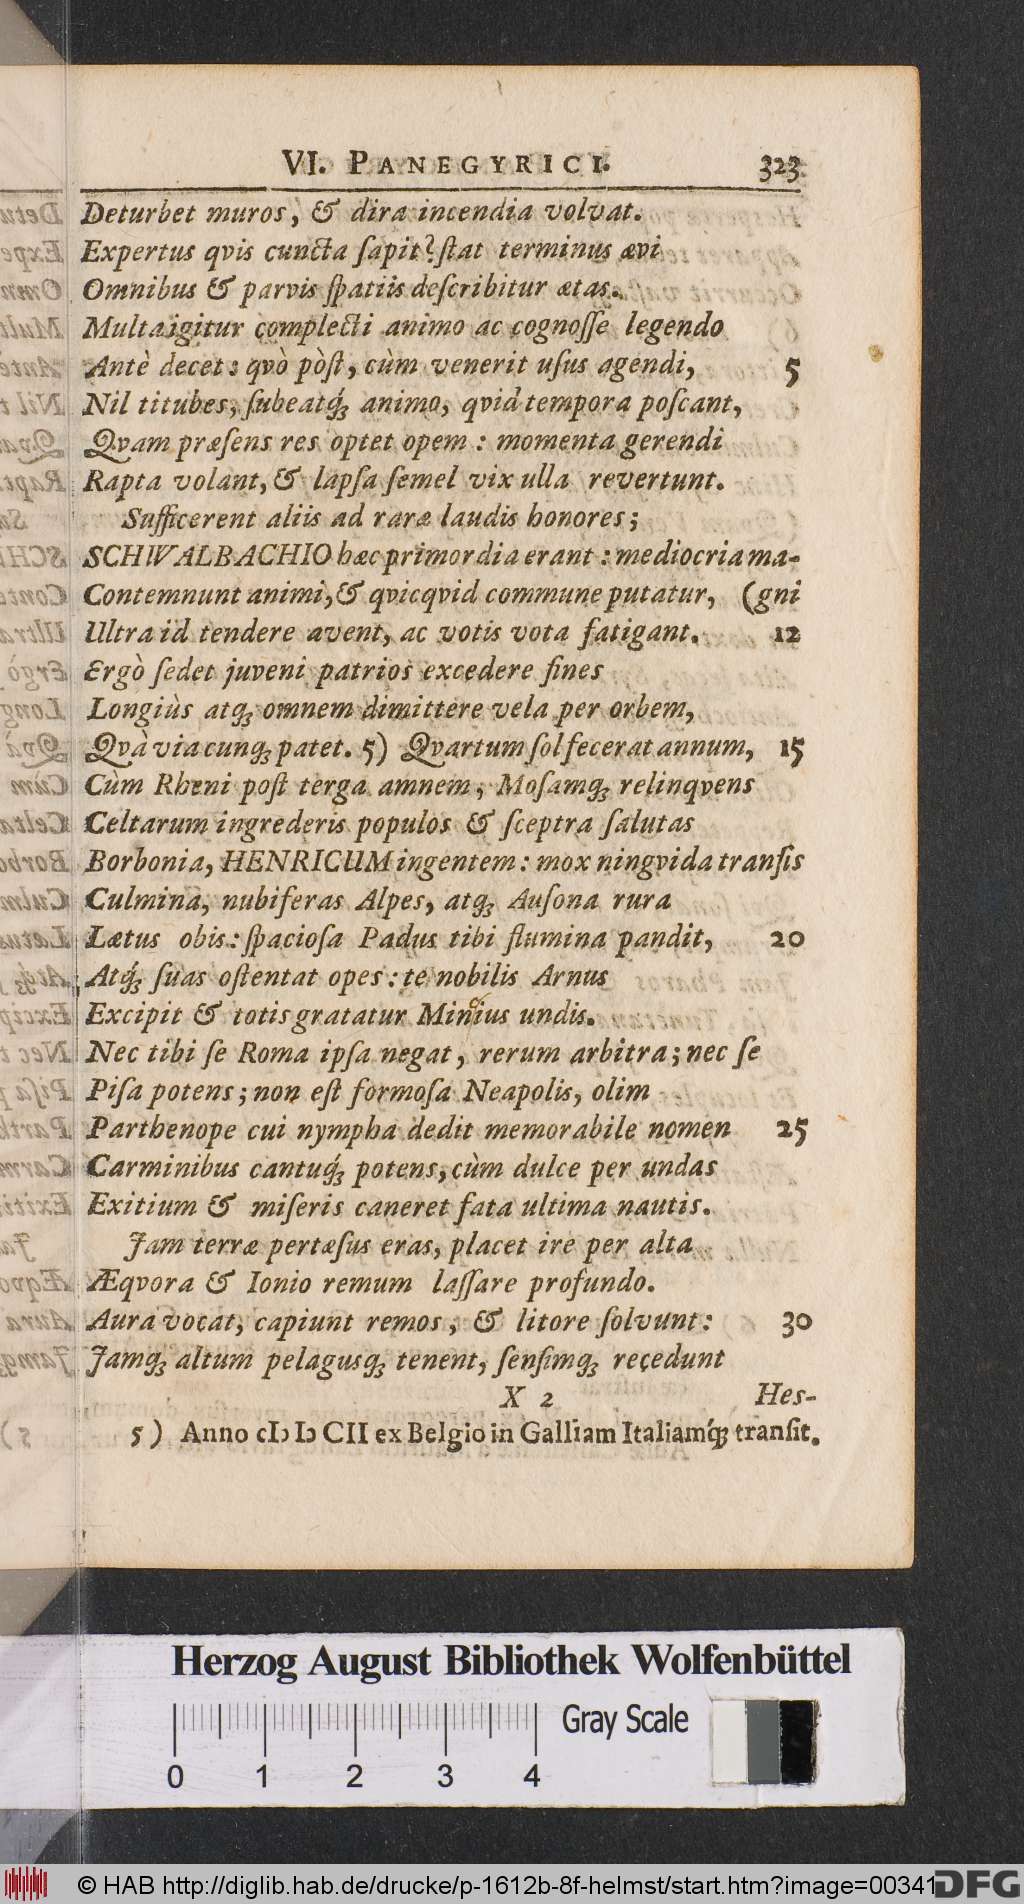 VI. PANEGYRICI. 323
Deturbet muros, & dira incendia volvat.
Expertus qvis cuncta ſapit? ſtat terminus ævi
Omnibus & parvis ſpatiis deſcribitur ætas.
Multa igitur complecti animo ac cognoſſe legendo
Antè decet: qvò pòſt, cùm venerit uſus agendi, 5
Nil titubes, ſubeatq́ꝫ animo, qvid tempora poſcant,
Qvam præſens res optet opem: momenta gerendi
Rapta volant, & lapſa ſemel vix ulla revertunt.
Sufficerent aliis ad raræ laudis honores;
SCHWALBACHIO hæc primordia erant: mediocria ma-
Contemnunt animi, & qvicqvid commune putatur, (gni
Ultra id tendere avent, ac votis vota fatigant. 12
Ergò ſedet juveni patrios excedere fines
Longiùs atqꝫ omnem dimittere vela per orbem,
Qvà via cunqꝫ patet. 5) Qvartum ſol fecerat annum, 15
Cùm Rheni poſt terga amnem, Moſamqꝫ relinqvens
Celtarum ingrederis populos & ſceptra ſalutas
Borbonia, HENRICUM ingentem: mox ningvida tranſis
Culmina, nubiferas Alpes, atqꝫ Auſona rura
Lætus obis: ſpacioſa Padus tibi flumina pandit, 20
Atq́ꝫ ſuas oſtentat opes: te nobilis Arnus
Excipit & totis gratatur Mincius undis.
Nec tibi ſe Roma ipſa negat, rerum arbitra; nec ſe
Piſa potens; non eſt formoſa Neapolis, olim
Parthenope cui nympha dedit memorabile nomen 25
Carminibus cantuq́ꝫ potens, cùm dulce per undas
Exitium & miſeris caneret fata ultima nautis.
Jam terræ pertæſus eras, placet ire per alta
Æqvora & Ionio remum laſſare profundo.
Aura vocat, capiunt remos, & litore ſolvunt: 30
Jamqꝫ altum pelagusqꝫ tenent, ſenſimqꝫ recedunt
X 2 Hes-
5) Anno cIↃ IↃ CII ex Belgio in Galliam Italiamq́ꝫ tranſit.
Herzog August Bibliothek Wolfenbüttel
Gray Scale
0 1 2 3 4
© HAB http://diglib.hab.de/drucke/p-1612b-8f-helmst/start.htm?image=00341
DFG